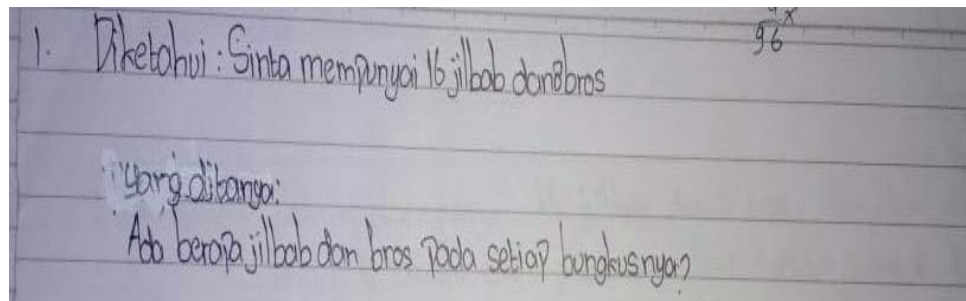 x
96
1. Diketahui : Sinta mempunyai 16 jilbab dan 8 bros
yang ditanya:
Ada berapa jilbab dan bros pada setiap bungkusnya?